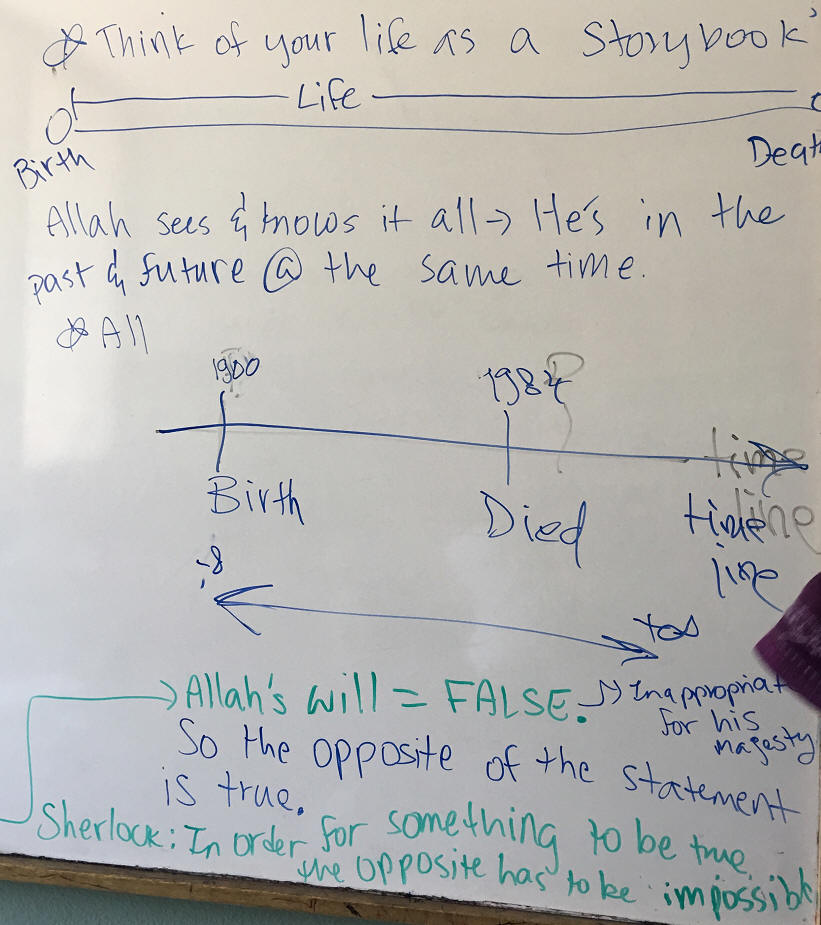 Think of your life as a Storybook
Life
Birth
Deat
Allah sees & knows it all → He's in the
past & future @ the same time.
All
1900
1984
Birth
Died
time
line
time
line
Allah's will = FALSE.
Inappropriat
for his
majesty
So the opposite of the statement
is true.
Sherlock: In order for something to be true,
the opposite has to be impossibl